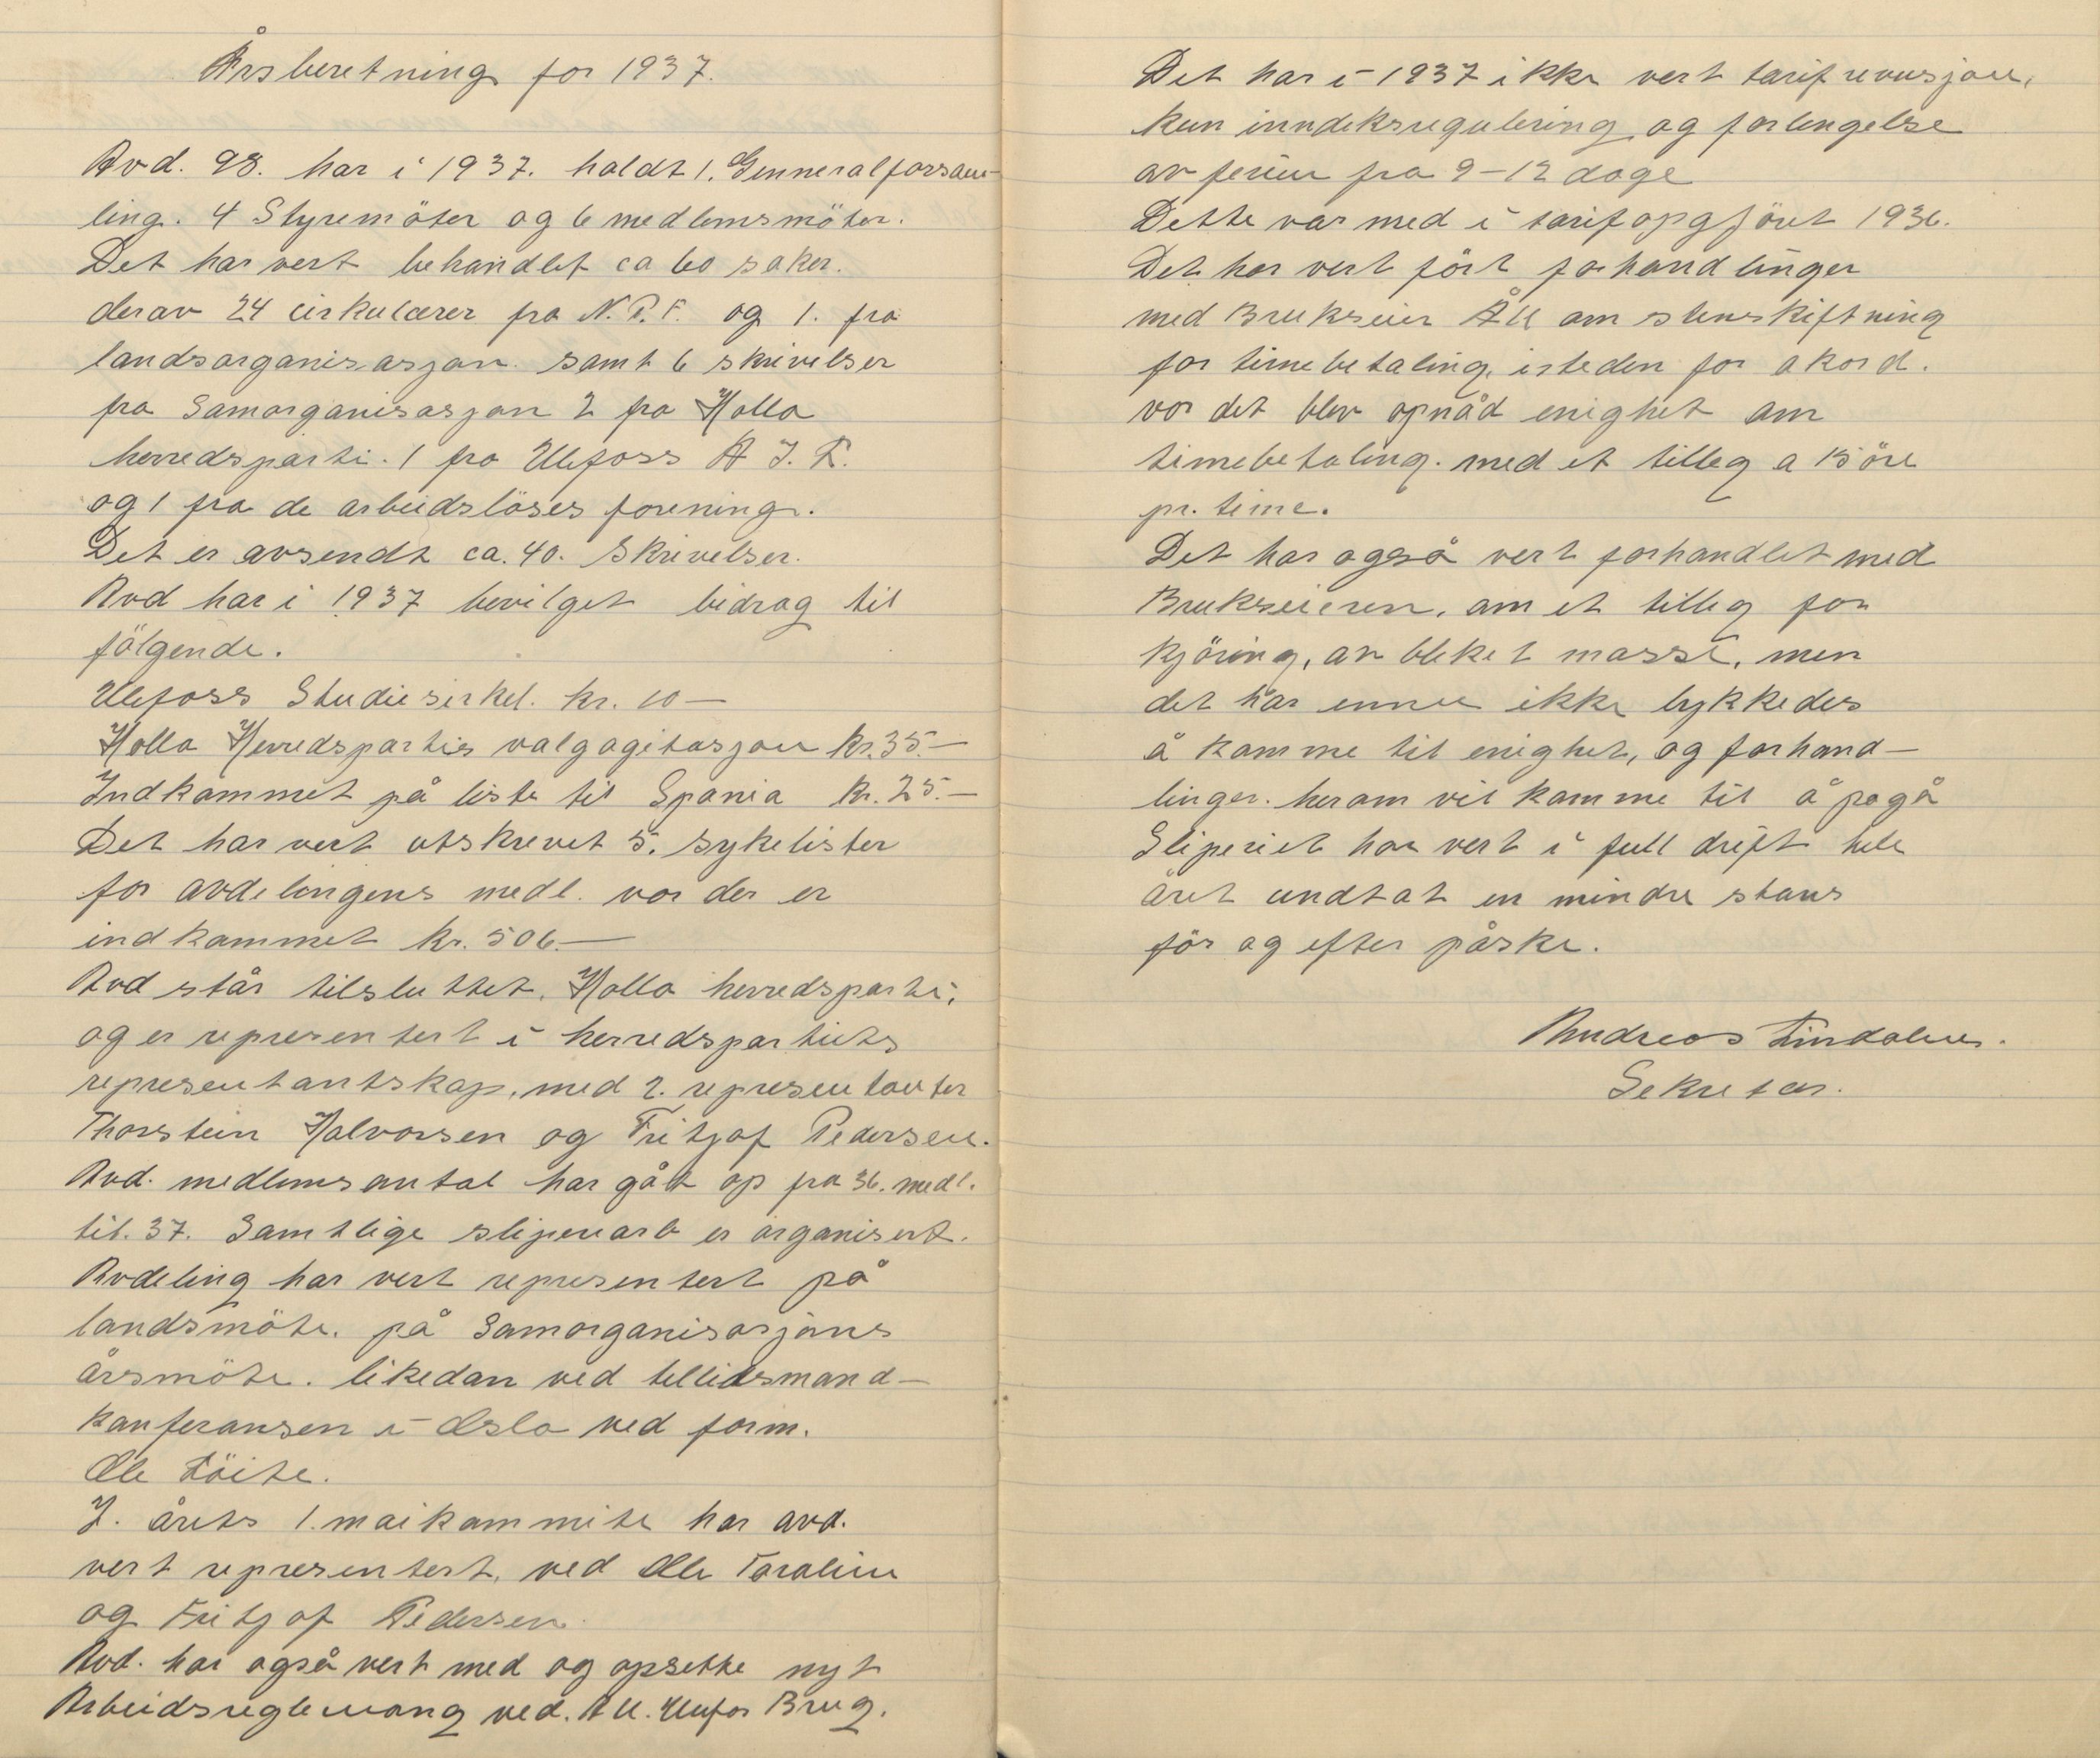 Årsberetning for 1937.
Avd. 98. har i 1937. holdt 1. Genneralforsam-
ling. 4 Styremöter og 6 medlemsmöter.
Det har vert behandlet ca 60 saker.
derav 24 cirkulærer fra N. P. F. og 1. fra
landsorganisasjon. samt 6 skrivelser
fra Samorganisasjon 2 fra Holla
herredsparti. 1 fra Ulefoss A I. F.
og 1 fra de arbeidslöses forening.
Det er avsendt ca. 40. Skrivelser.
Avd har i 1937 bevilget bidrag til
fölgende.
Ulefoss Studiesirkel. kr. 10 —
Holla Herredspartis valgagitasjon kr. 35. —
Indkommet på liste til Spania kr. 25. —
Det har vert utskrevet 5. sykelister
for avdelingens medl. vor der er
indkommet kr. 506. —
Avd står tilsluttet. Holla herredsparti,
og er representert i herredspartiets
representantskap, med 2. representanter
Thorstein Halvorsen og Fritjof Pedersen.
Avd. medlemsantal har gått op fra 36. medl.
til. 37. Samtlige sliperiarb er organisert.
Avdeling har vert representert på
landsmöte. på Samorganisasjons
årsmöte. likedan ved tellidsmand-
konferansen i Oslo ved form.
Ole Löite.
I. årets 1. maikommite har avd.
vert representert, ved Ole Taralien
og Fritjof Pedersen.
Avd. har også vert med og opsette nyt
Arbeidsreglemang ved. All. Ulefos Brug.
Det har i 1937 ikke vert tarifrevusjon,
kun inndeksregulering og forlengelse
av ferien fra 9-12 dage
Dette var med i tarifopgjöret 1936.
Det har vert fört forhandlinger
med Brukseier Åll om stenskiftning
for timebetaling, isteden for akord.
vor det blev opnåd enighet om
timebetaling. med et tilleg a 15 öre
pr. time.
Det har også vert forhandlet med
Brukseieren, om et tilleg for
kjöring, av bleket masse, men
det har ennu ikke lykkedes
å komme til enighet, og forhand-
linger. herom vil komme til å pogå
Sliperiet har vert i full drift hele
året undtat en mindre stans
för og efter påske.
Andreas Lindalen.
Sekretær.